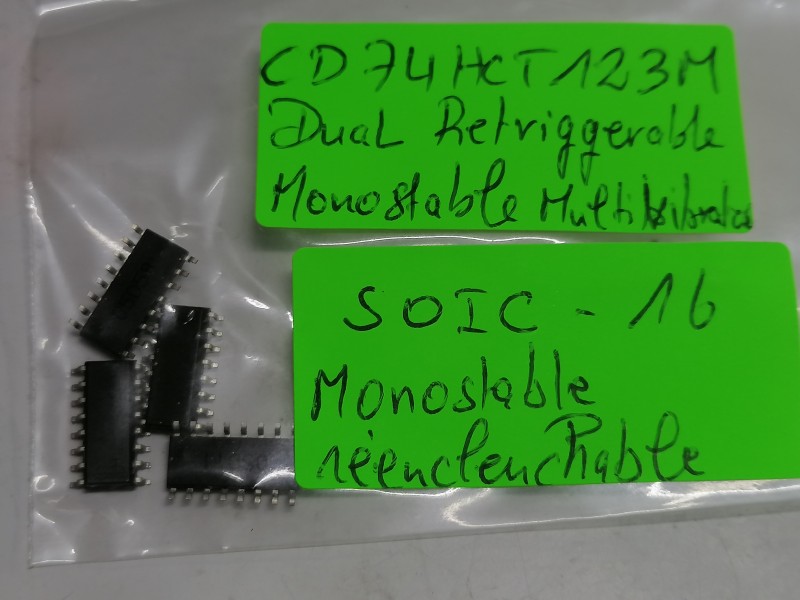 CD74HCT123M
Dual Retriggerable
Monostable Multivibrator
SOIC - 16
Monostable
réenclenchable